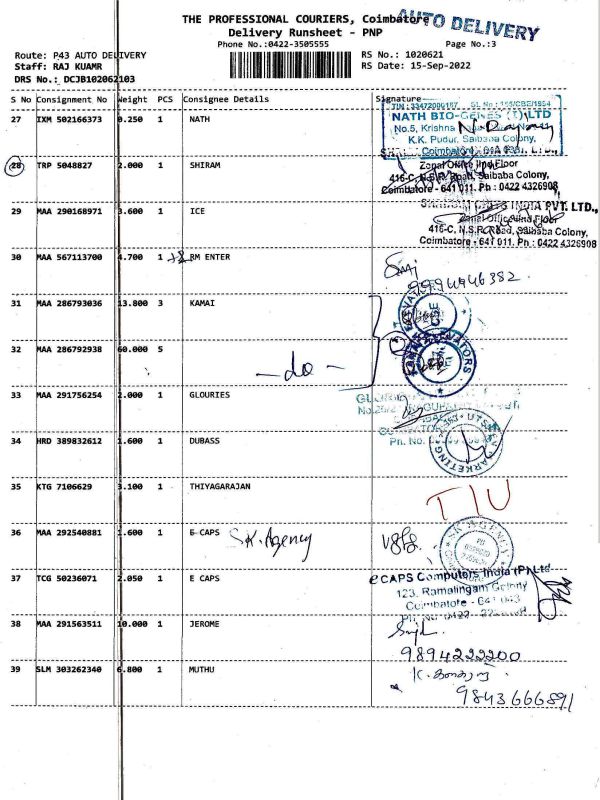 THE PROFESSIONAL COURIERS, Coimbatore
AUTO DELIVERY
Delivery Runsheet - PNP
Phone No.:0422-3505555
Page No.:3
Route: P43 AUTO DELIVERY
RS No.: 1020621
Staff: RAJ KUAMR
RS Date: 15-Sep-2022
DRS No.: DCJB102062103
S No Consignment No Weight PCS Consignee Details Signature
27 IXM 502166373 0.250 1 NATH
NATH BIO-GENES (I) LTD
No.5, Krishna
K.K. Pudur, Saibaba Colony,
28 TRP 5048827 2.000 1 SHIRAM
Zonal Office IInd Floor
416-C, N.S.R. Road, Saibaba Colony,
Coimbatore - 641 011. Ph : 0422 4326908
29 MAA 290168971 3.600 1 ICE
INDIA PVT. LTD.,
Zonal Office IInd Floor
416-C, N.S.R. Road, Saibaba Colony,
Coimbatore - 641 011. Ph : 0422 4326908
30 MAA 567113700 4.700 1 RM ENTER
9994946382
31 MAA 286793036 13.800 3 KAMAI
32 MAA 286792938 60.000 5
- do -
33 MAA 291756254 2.000 1 GLOURIES
34 HRD 389832612 1.600 1 DUBASS
35 KTG 7106629 3.100 1 THIYAGARAJAN
36 MAA 292540881 1.600 1 E CAPS S.K. Agency
S.K. AGENCY
37 TCG 50236071 2.050 1 E CAPS
eCAPS Computers India (P) Ltd
123, Ramalingam Colony
Coimbatore - 641 043
38 MAA 291563511 10.000 1 JEROME
9894222200
39 SLM 303262340 6.800 1 MUTHU
9843666891